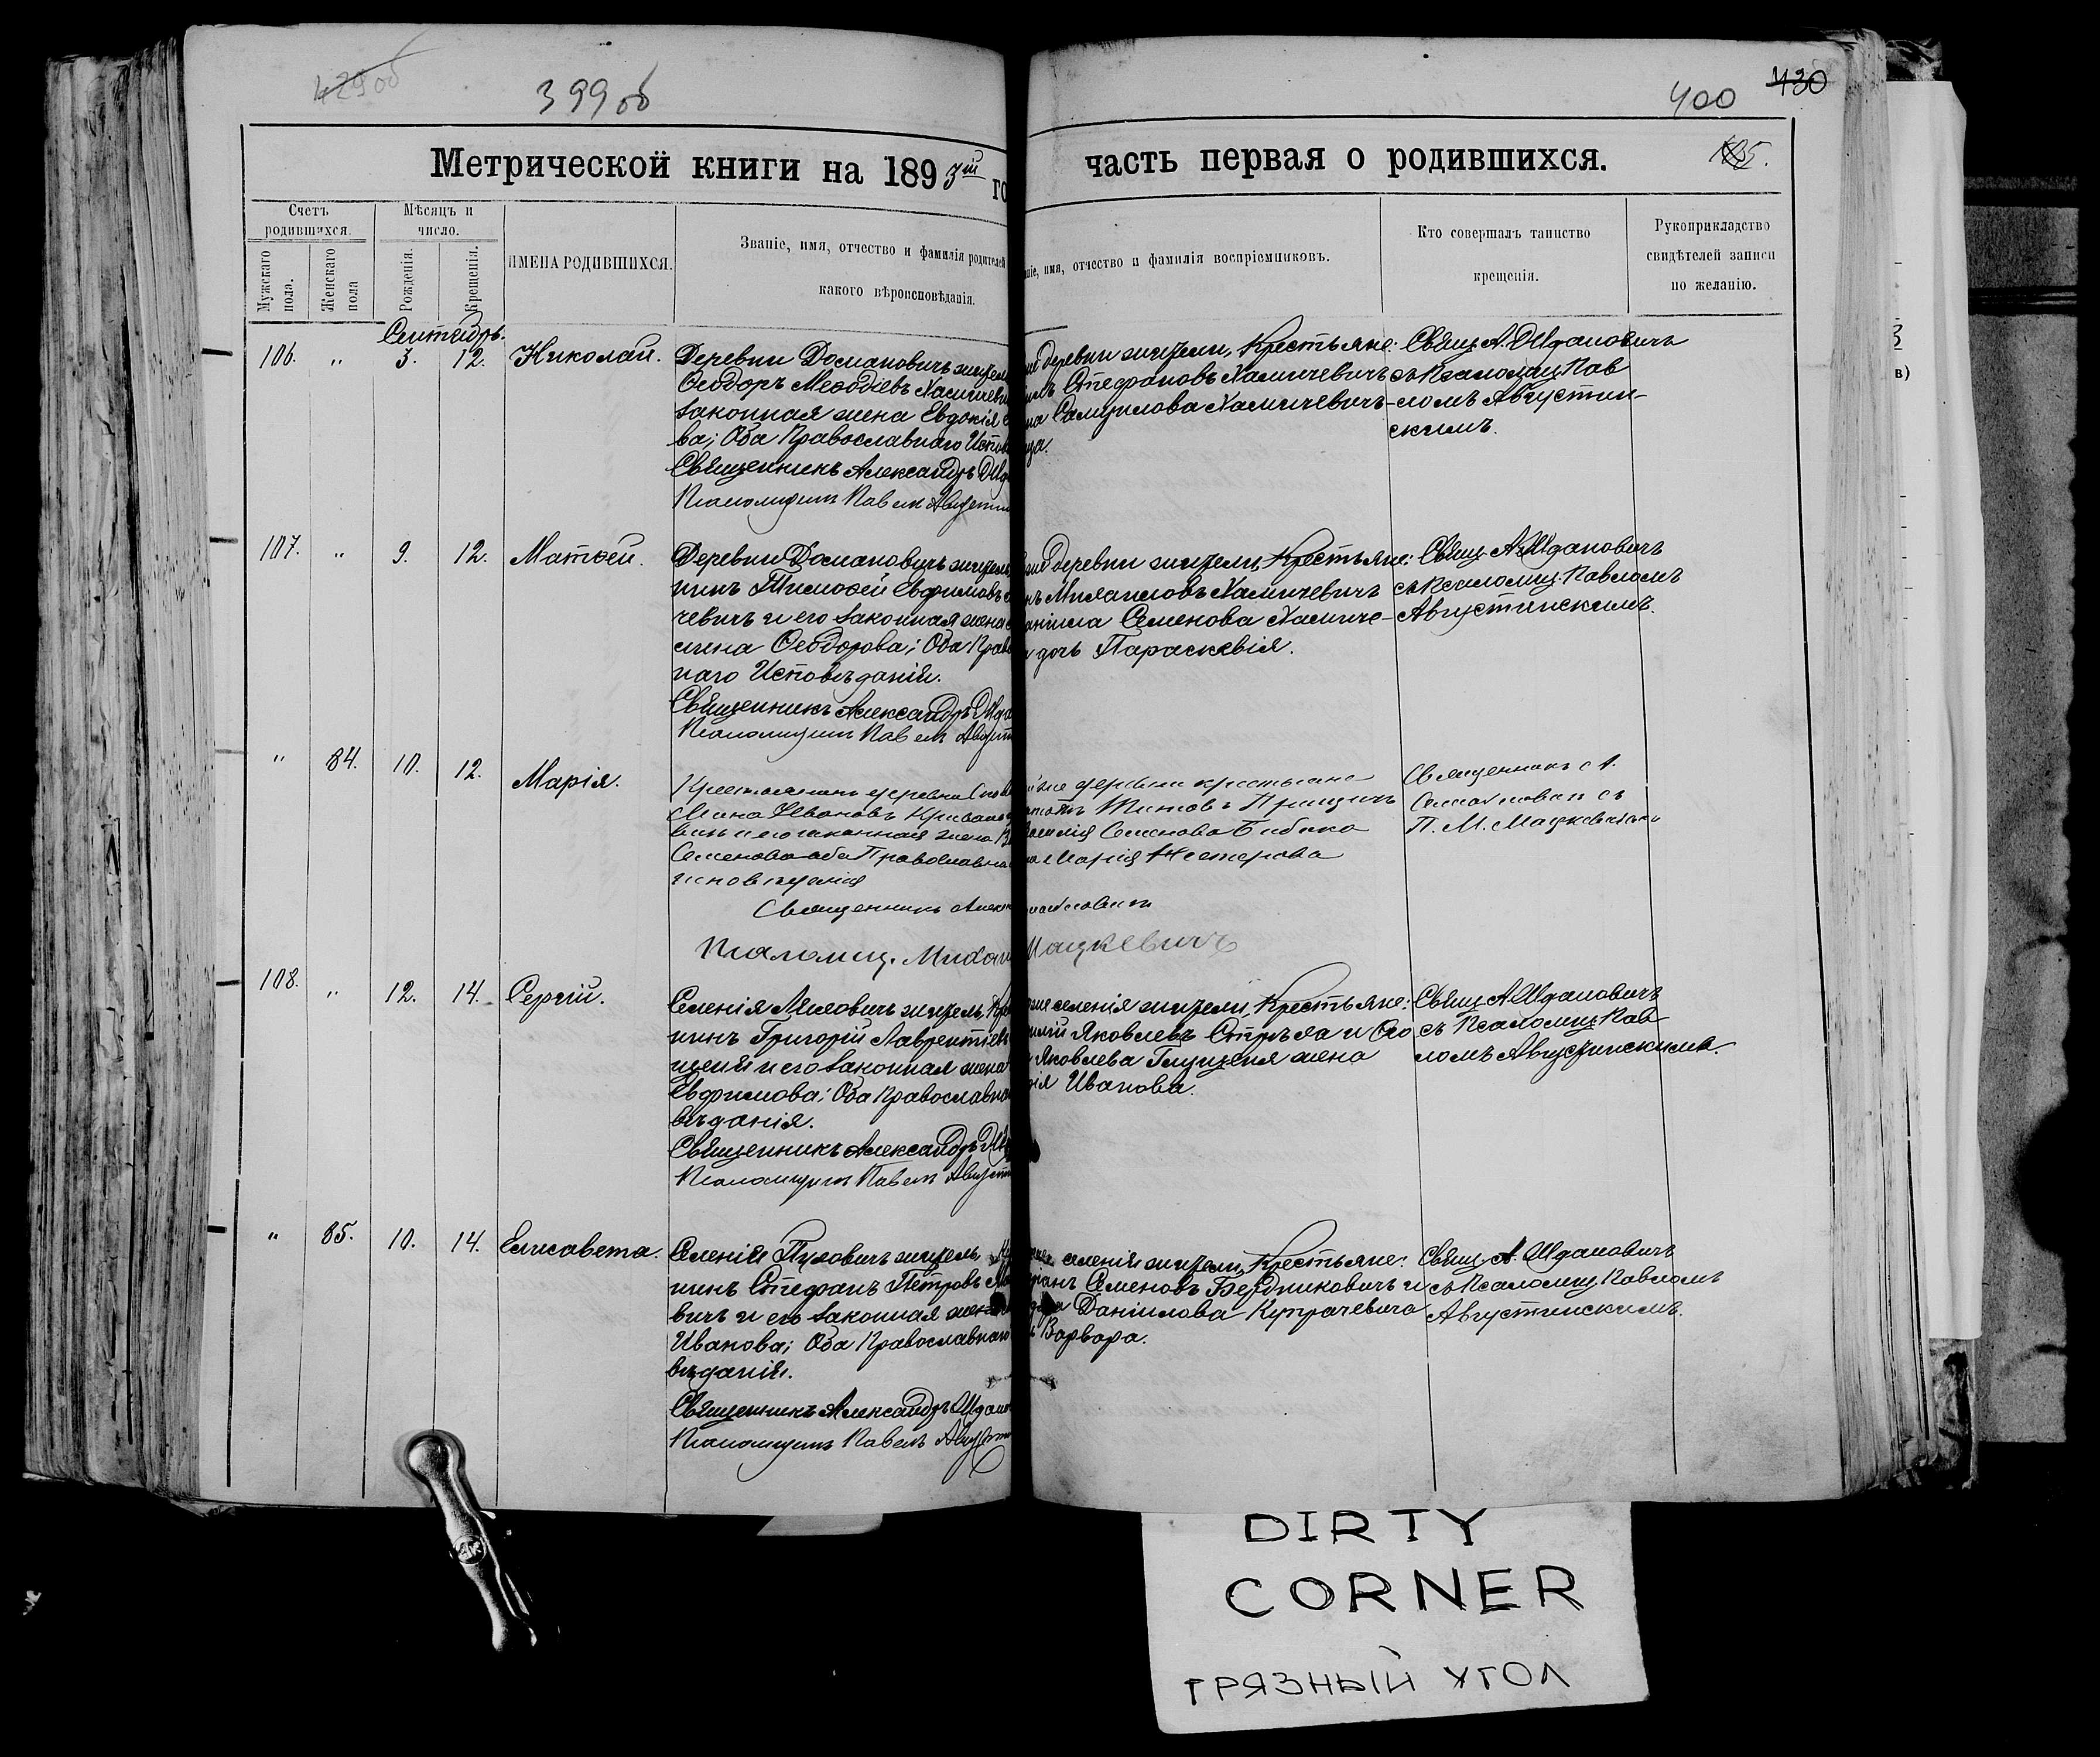 429об
399об
400
430
Метрической книги на 1893ій го
часть первая о родившихся.
Счетъ родившихся.
Мѣсяцъ и число.
Мужскаго пола.
Женскаго пола
Рожденія.
Крещенія.
ИМЕНА РОДИВШИХСЯ.
Званіе, имя, отчество и фамилія родителей
какого вѣроисповѣданія.
ніе, имя, отчество и фамилія воспріемниковъ.
Кто совершалъ таинство
крещенія.
Рукоприкладство
свидѣтелей записи
по желанію.
Сентябрь.
106. " 3. 12. Николай.
Деревни Домановичъ жител
Ѳеодоръ Меѳодіевъ Хамичеви
законная жена Евдокія
ва; Оба Православнаго Испов
Священникъ Александръ Шд
Псаломщикъ Павелъ Августин
же деревни жители, Крестьяне:
Стефановъ Хамичевичъ
на Самуилова Хамичевичъ
Свящ. А. Шдановичъ
съ Псаломщ. Пав
ломъ Августин-
скимъ.
107. " 9. 12. Матѳей.
Деревни Домановичъ житель
нинъ Тимоѳей Евфимовъ
чевичъ и его законная жена
Ѳеодорова; Оба Прав
наго Исповѣданія.
Священникъ Александръ Шда
Псаломщикъ Павелъ Август
деревни жители, Крестьяне:
Михаиловъ Хамичевичъ
Семенова Хамиче-
дочь Параскевія.
Свящ. А. Шдановичъ
съ Псаломщ. Павломъ
Августинскимъ.
" 84. 10. 12. Марія.
Крестьянинъ деревни
Мина Ивановъ
законная жена
Семенова оба Православна
исповѣданія
Священникъ Алек
Псаломщ. Михаи
же деревни крестьяне
Титовъ
Семенова Бибика
Марія Нестерова
Мацкевичъ
Священникъ А.
съ
П. М. Мацкевичемъ
108. " 12. 14. Сергій.
Селенія житель Кре
нинъ Григорій Лаврентіевъ
щеня и его законная жена
Евфимова; Оба Православна
вѣданія.
Священникъ Александръ Шд
Псаломщикъ Павелъ Августи
же селенія жители, Крестьяне:
Яковлевъ Стрѣха и Ѳео
Яковлева Глущеня жена
Иванова.
Свящ. А. Шдановичъ
съ Псаломщ. Пав
ломъ Августинскимъ.
" 85. 10. 14. Елисавета.
Селенія Пуховичъ житель
нинъ Стефанъ Петровъ
вичъ и его законная жена
Иванова; Оба Православнаго
вѣданія.
Священникъ Александръ Шдано
Псаломщикъ Павелъ Август
селенія жители, Крестьяне:
Семеновъ Бердниковичъ и
Даніилова Купрачевича
Варвара.
Свящ. А. Шдановичъ
съ Псаломщ. Павломъ
Августинскимъ.
DIRTY
CORNER
ГРЯЗНЫЙ УГОЛ